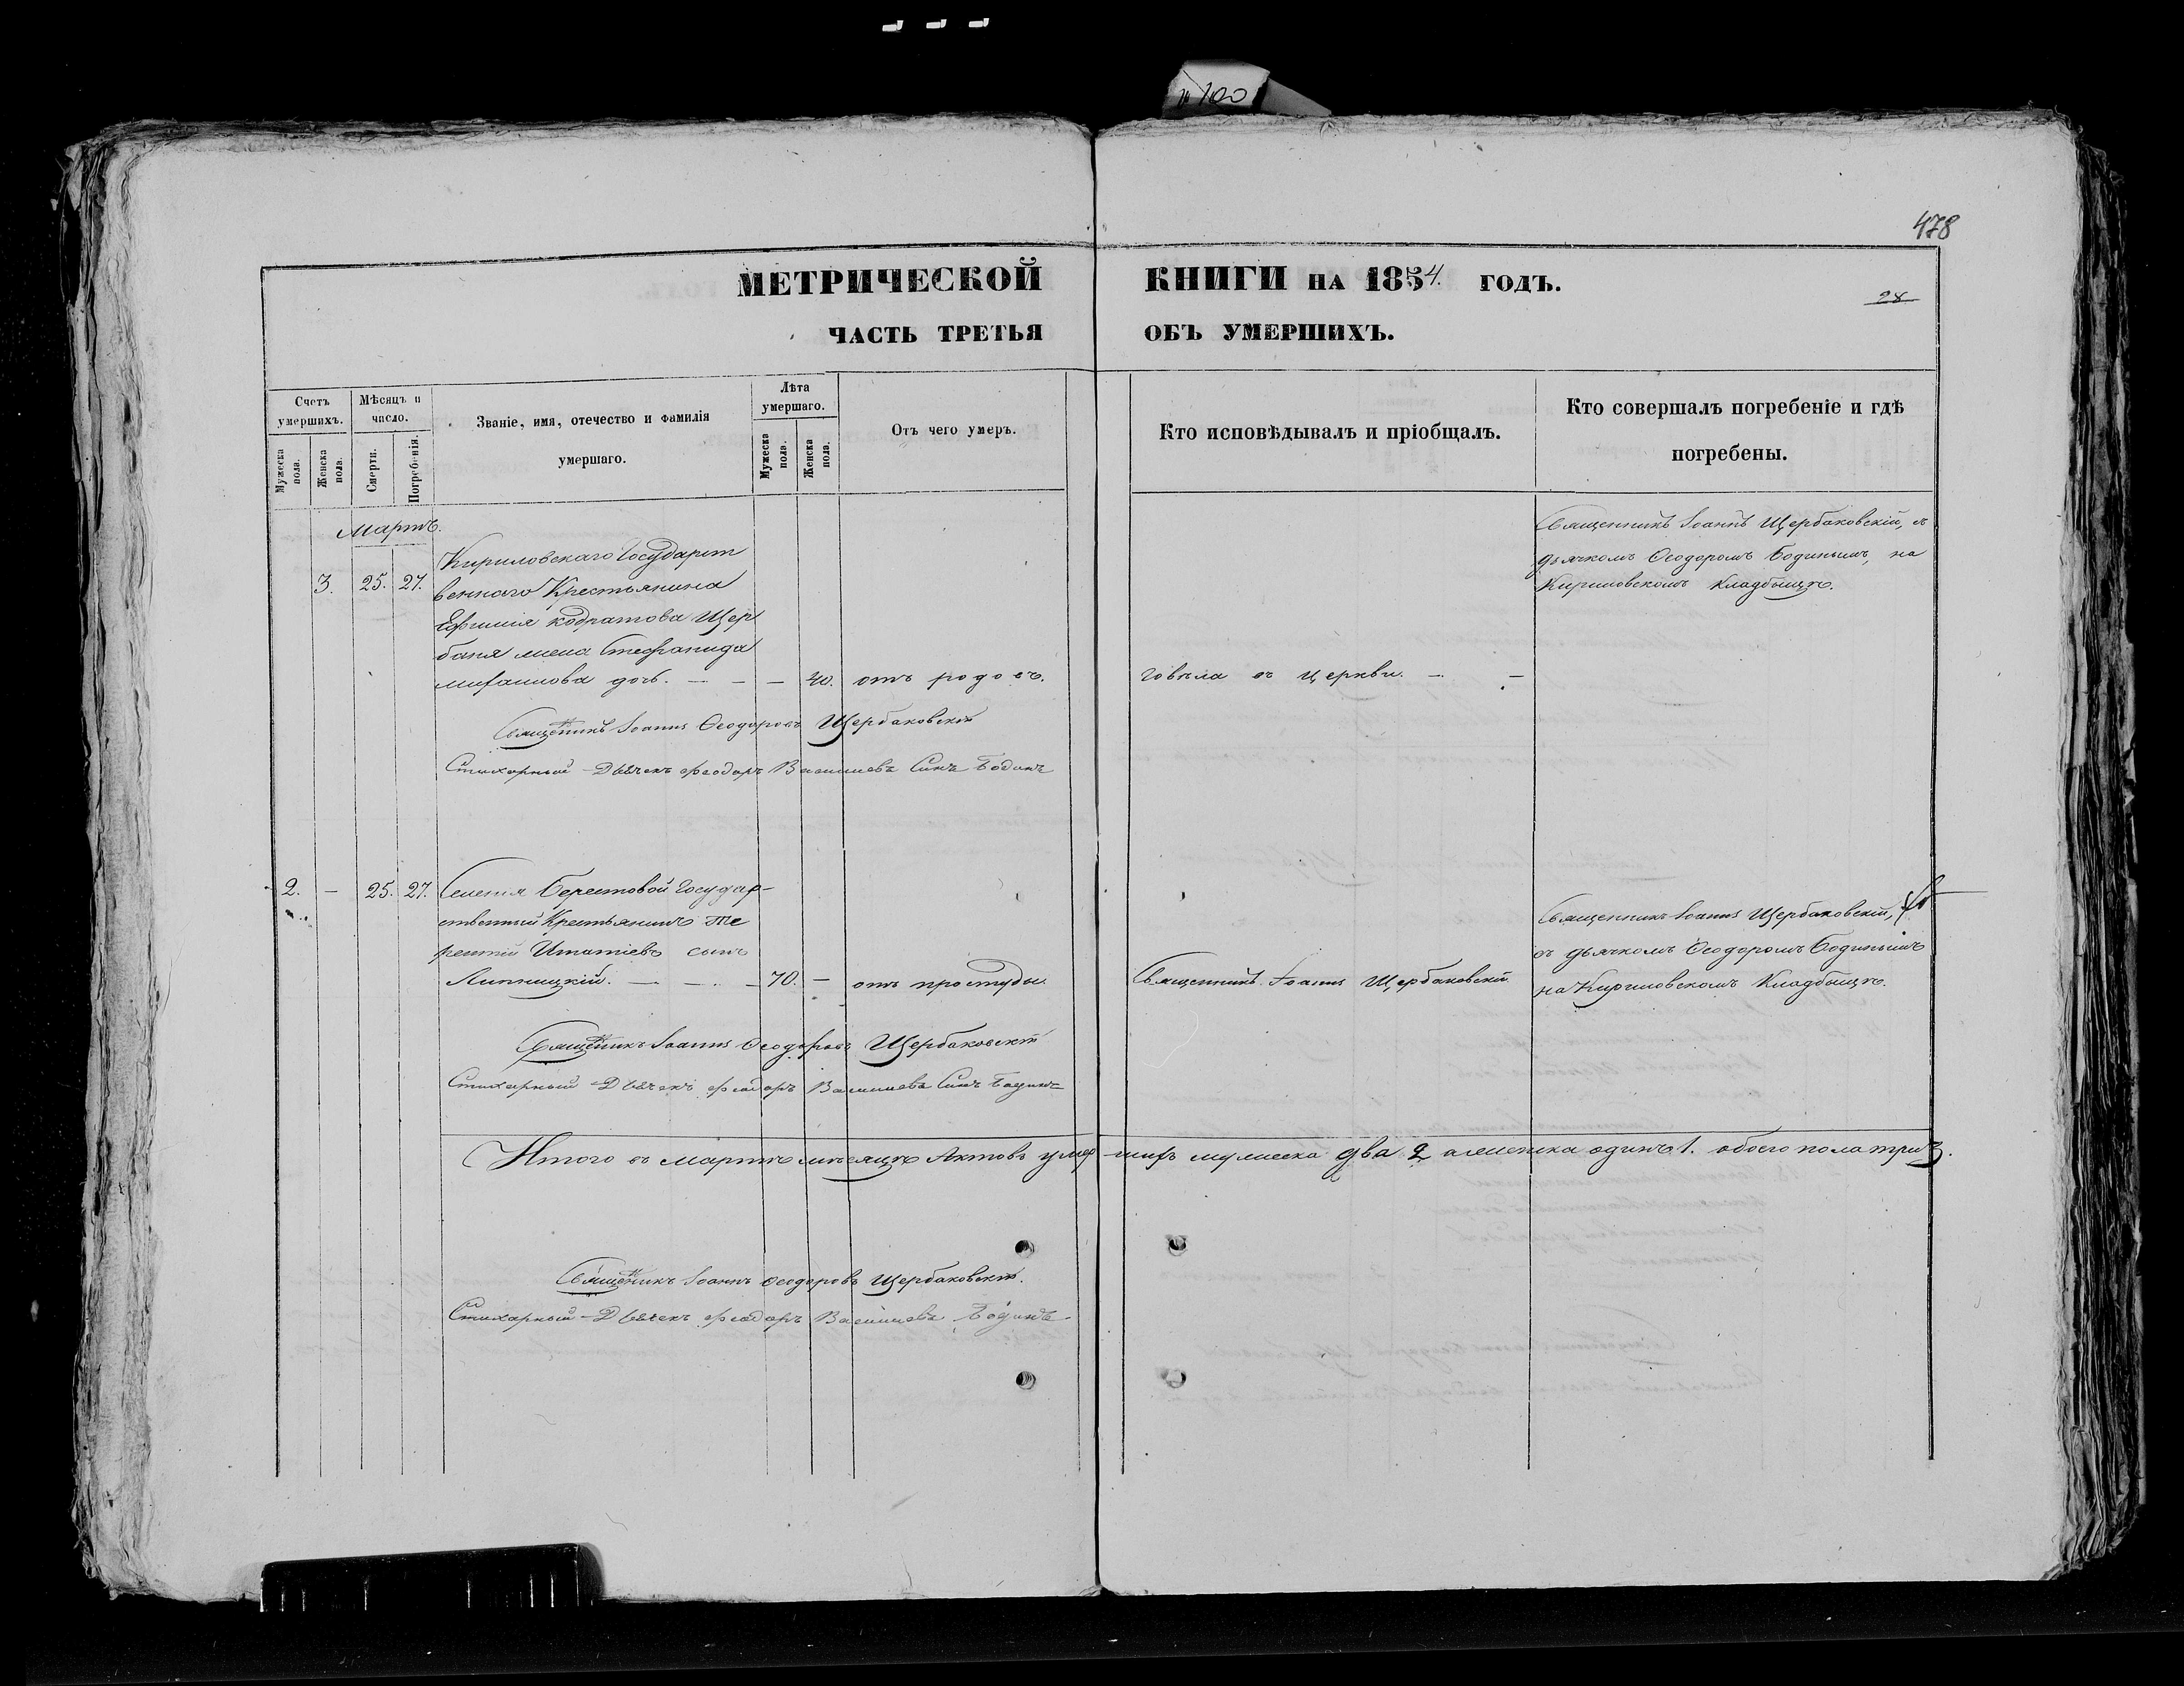 № 100
478
МЕТРИЧЕСКОЙ КНИГИ НА 1854. ГОДЪ.
28
ЧАСТЬ ТРЕТЬЯ ОБЪ УМЕРШИХЪ.
Счетъ умершихъ.
Мужеска пола.
Женска пола.
Мѣсяцъ и число.
Смерти.
Погребенія.
Званіе, имя, отечество и фамилія
умершаго.
Лѣта умершаго.
Мужеска пола.
Женска пола.
Отъ чего умеръ.
Кто исповѣдывалъ и пріобщалъ.
Кто совершалъ погребеніе и гдѣ
погребены.
Мартъ.
3. 25. 27.
Кириловскаго Государст
веннаго Крестьянина
Ефимія кодратова Щер
баня жена Стефанида
михаилова дочь. — — — 40. отъ родовъ.
говѣла въ церкви. — —
Священникъ Іоаннъ Щербаковскій, съ
дьячкомъ Ѳеодоромъ Бодинымъ, на
Кириловскомъ Кладбищѣ.
Священникъ Іоаннъ Ѳеодоровъ Щербаковскій
Стихарный Дьячекъ Феодоръ Василиевъ Синъ Бодинъ
2. — 25. 27. Селенія Берестовой Государ-
ственный Крестьянинъ Те
рентій Игнатіевъ сынъ
Липницкій. — — — 70. — отъ простуды.
Священникъ Іоаннъ Щербаковскій
Священникъ Іоаннъ Щербаковскій,
съ дьячкомъ Ѳеодоромъ Бодинымъ
на Кириловскомъ Кладбищѣ.
Священникъ Іоаннъ Ѳеодоровъ Щербаковскій
Стихарный Дьячекъ Феодоръ Василиевъ Синъ Бодинъ
Итого въ мартѣ мѣсяцѣ Актовъ умершихъ мужеска два 2 а женска одинъ 1. обоего пола три 3.
Священникъ Іоаннъ Ѳеодоровъ Щербаковскій.
Стихарный Дьячекъ Феодоръ Василиевъ Бодинъ